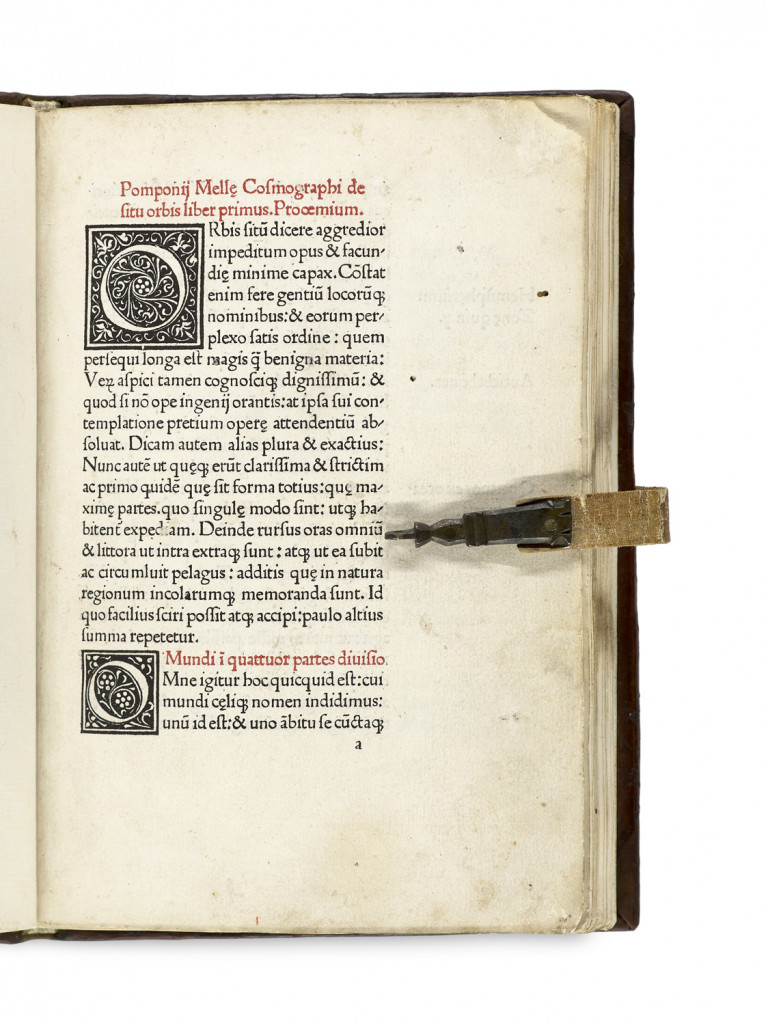 Pomponij Mellę Cosmographi de
situ orbis liber primus. Prooemium.
ORbis sitū dicere aggredior
impeditum opus & facun-
dię minime capax. Cōstat
enim fere gentiū locorūq;
nominibus: & eorum per-
plexo satis ordine: quem
persequi longa est magis q̄ benigna materia:
Veꝝ aspici tamen cognosciq; dignissimū: &
quod si nō ope ingenij orantis: at ipsa sui con-
templatione pretium operę attendentiū ab-
soluat. Dicam autem alias plura & exactius:
Nunc autē ut quęq; erūt clarissima & strictim
ac primo quidē quę sit forma totius: quę ma-
ximę partes. quo singulę modo sint: utq; ha-
bitent̄ expediam. Deinde rursus oras omniū
& littora ut intra extraq; sunt: atq; ut ea subit
ac circumluit pelagus: additis quę in natura
regionum incolarumq; memoranda sunt. Id
quo facilius sciri possit atq; accipi: paulo altius
summa repetetur.
Mundi ī quattuor partes diuisio.
OMne igitur hoc quicquid est: cui
mundi cęliq; nomen indidimus:
unū id est: & uno ābitu se cūctaq;
a